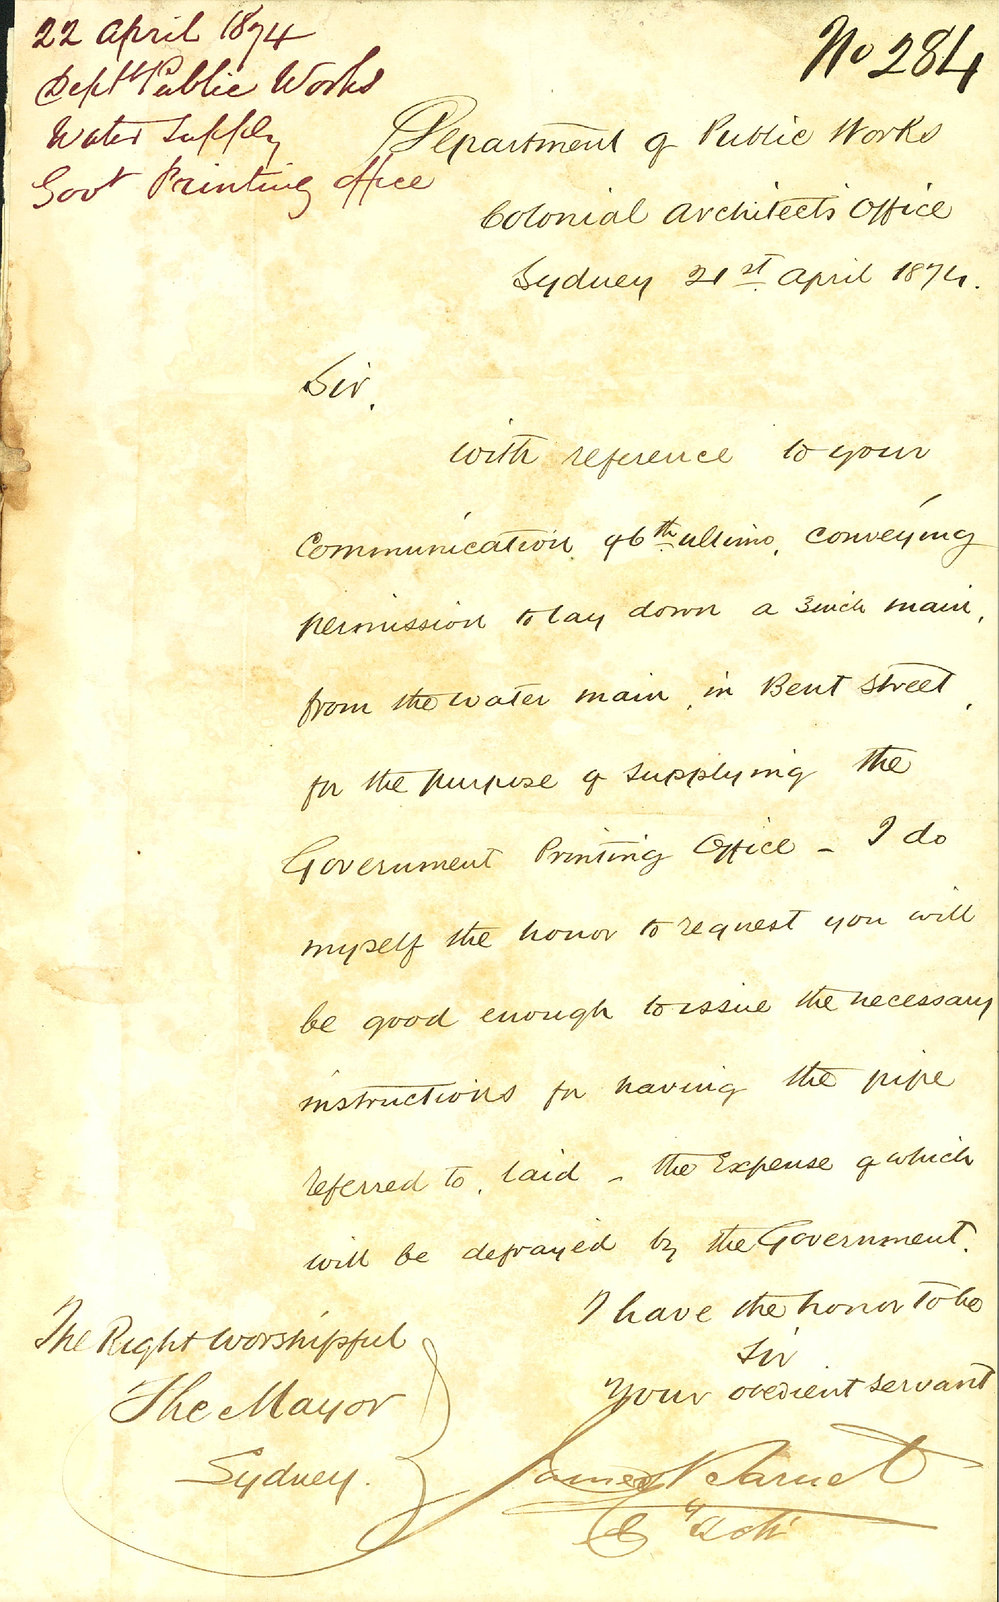 22 April 1874
Deptt Public Works
Water Supply
Govt Printing office
No 284
Department of Public Works
Colonial Architects Office
Sydney 21st April 1874.
Sir,
With reference to your
Communication of 6th ultimo, conveying
permission to lay down a 3 inch main,
from the water main, in Bent Street,
for the purpose of supplying the
Government Printing Office – I do
myself the honor to request you will
be good enough to issue the necessary
instructions for having the pipe
referred to, laid – the Expense of which
will be defrayed by the Government.
I have the honor to be
Sir
Your obedient servant
James Barnet
Cy Archt
The Right Worshipful
The Mayor
Sydney.